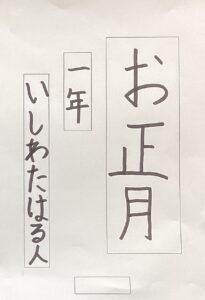 お正月
一年
いしわたはる人